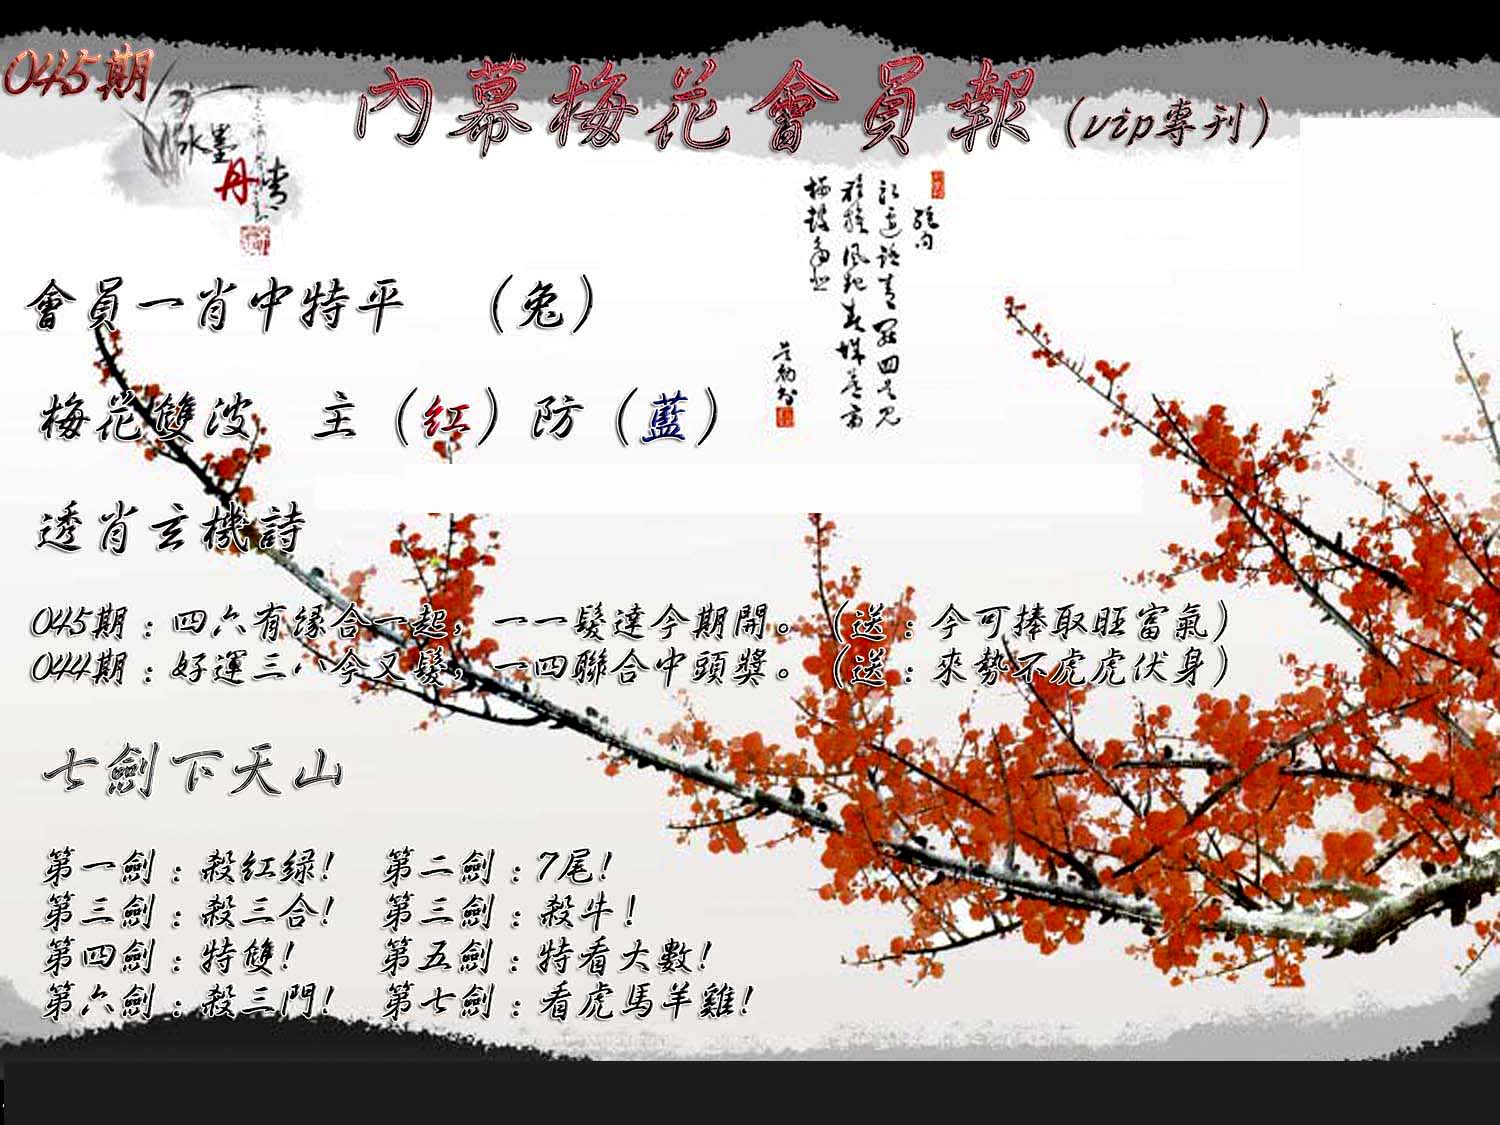 045期
內幕梅花會員報(vip專刊)
水墨
丹青
會員一肖中特平 (兔)
梅花雙波 主(紅)防(藍)
透肖玄機詩
045期:四六有缘合一起,一一髮達今期開。(送:今可捧取旺富氣)
044期:好運三八今又髮,一四聯合中頭獎。(送:來勢不虎虎伏身)
七劍下天山
第一劍:殺紅绿! 第二劍:7尾!
第三劍:殺三合! 第三劍:殺牛!
第四劍:特雙! 第五劍:特看大數!
第六劍:殺三門! 第七劍:看虎馬羊雞!